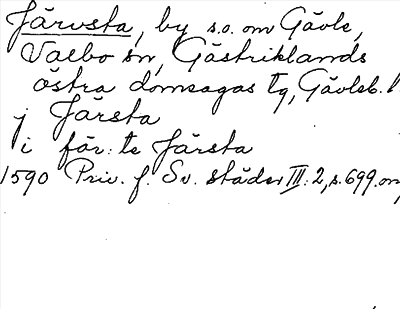 Järvsta, by s.o. om Gävle,
Valbo sn, Gästriklands
östra domsagas tg, Gävleb. l
j Järsta
i får: te Järsta
1590 Priv. f. Sv. städer III: 2, s. 699. om,